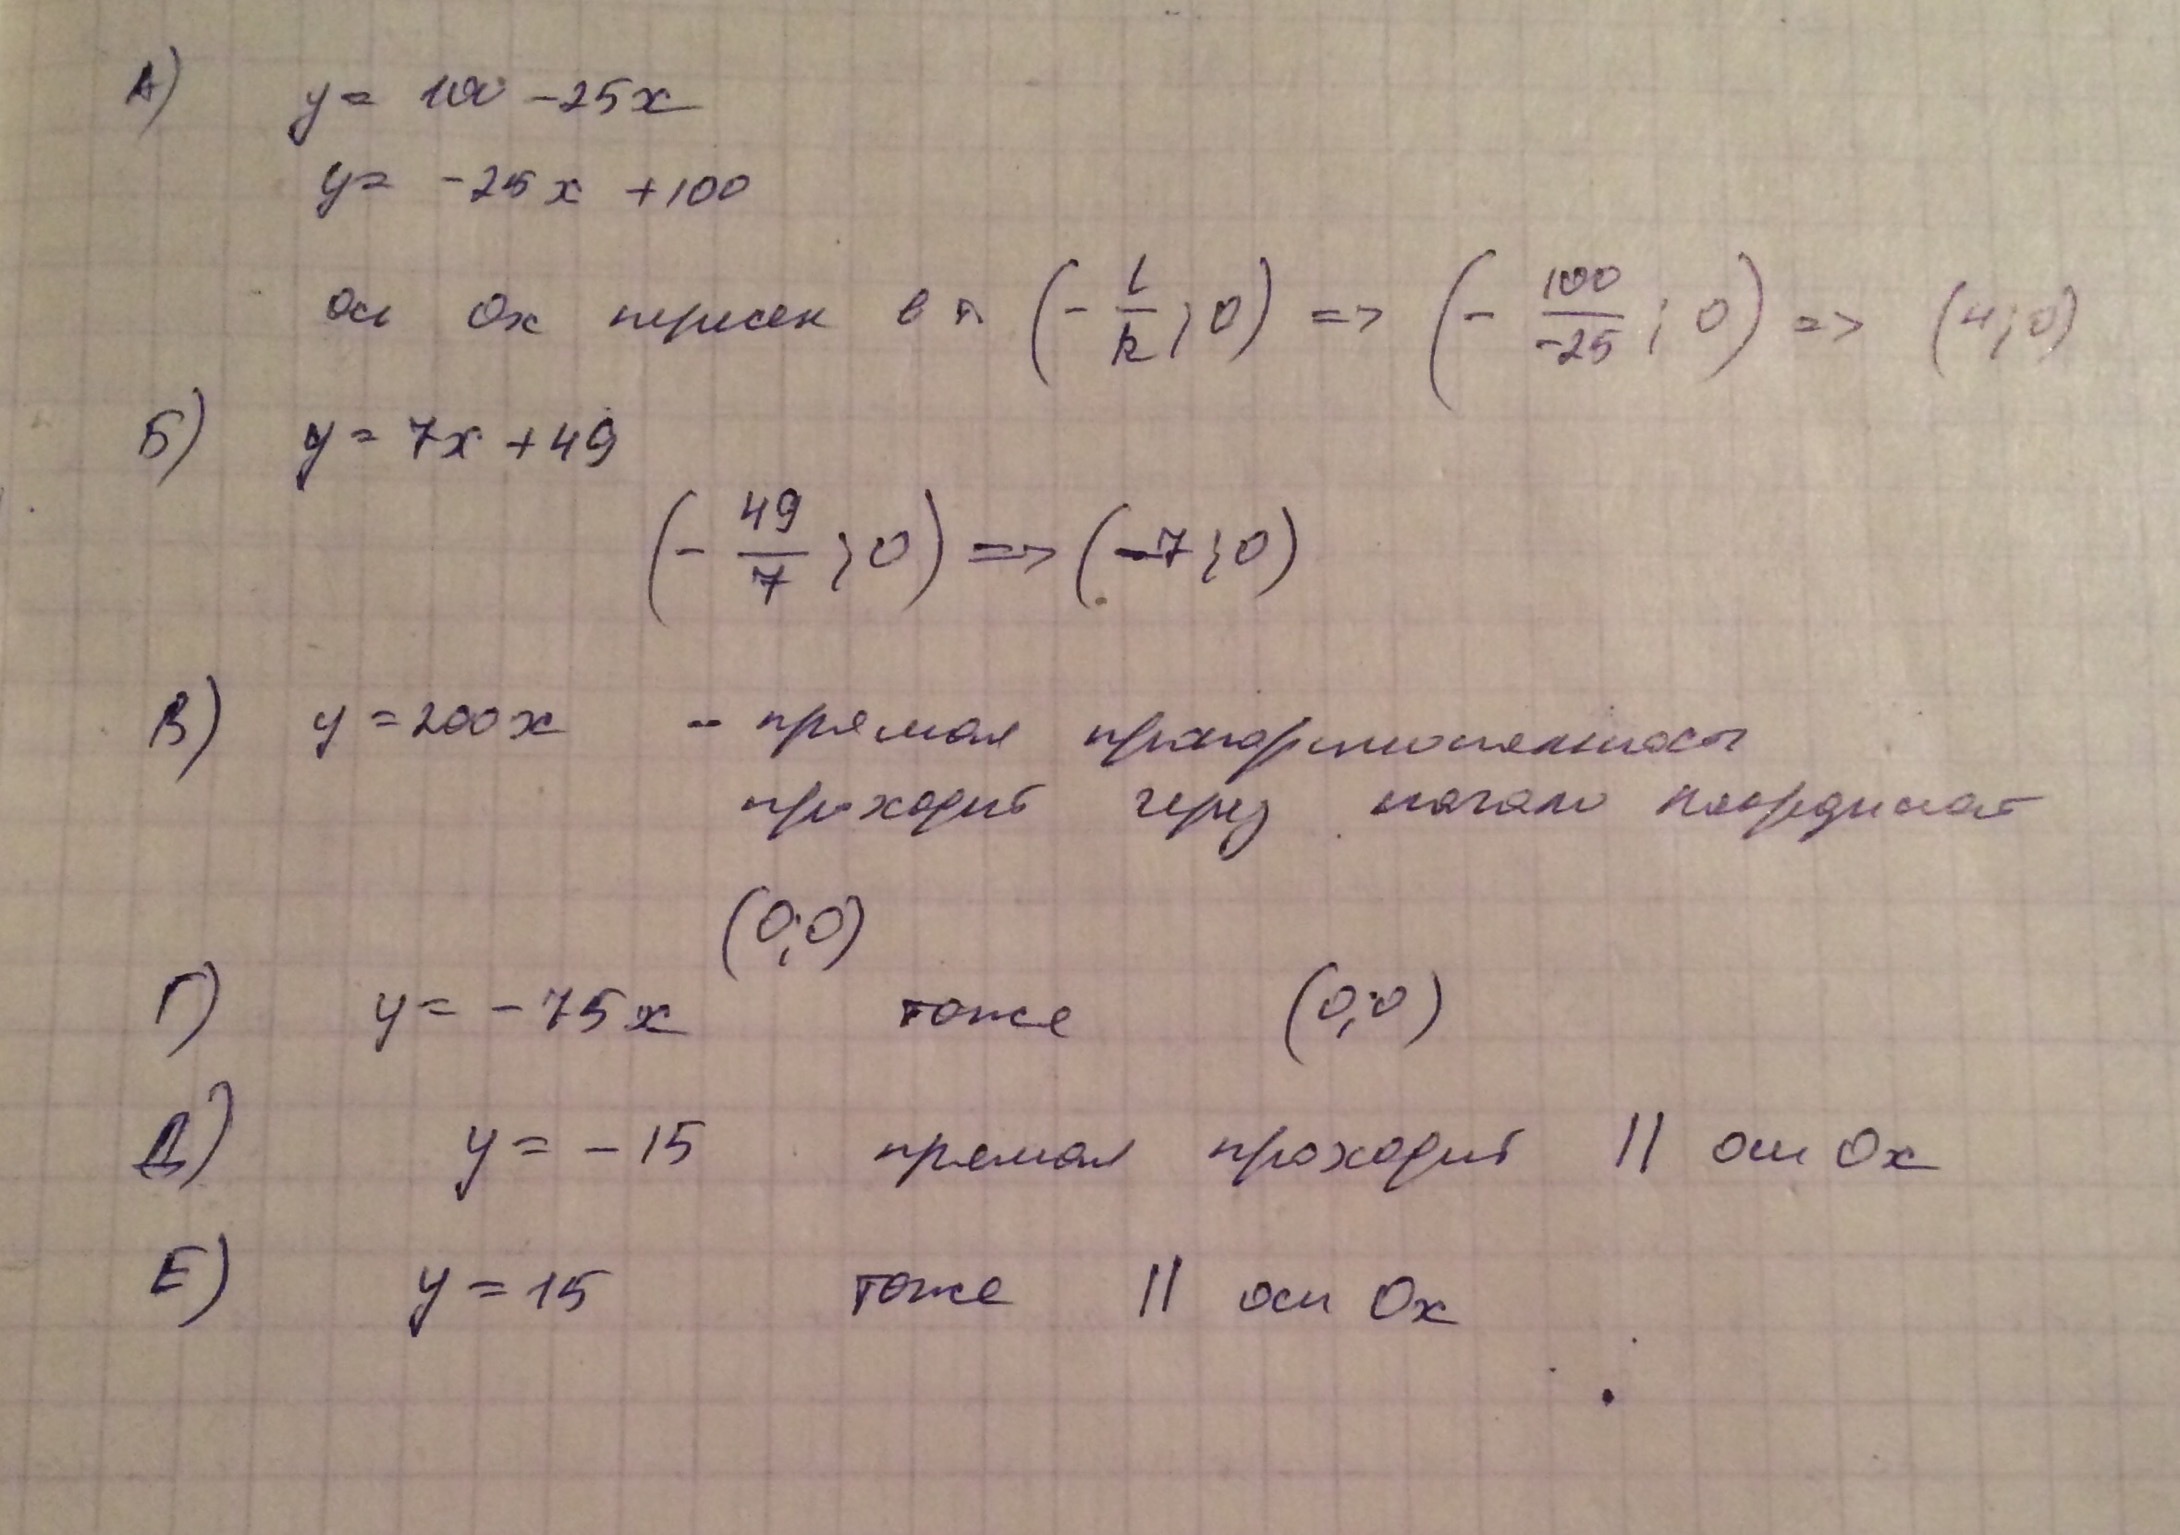 А) y = 100 - 25x
y = -25x + 100
ось Ox пересек в т. (- l/k ; 0) => (- 100/-25 ; 0) => (4; 0)
Б) y = 7x + 49
(- 49/7 ; 0) => (-7; 0)
В) y = 200x -- прямая пропорциональность
проходит через начало координат
(0; 0)
Г) y = -75x тоже (0; 0)
Д) y = -15 прямая проходит || оси Ox
Е) y = 15 тоже || оси Ox